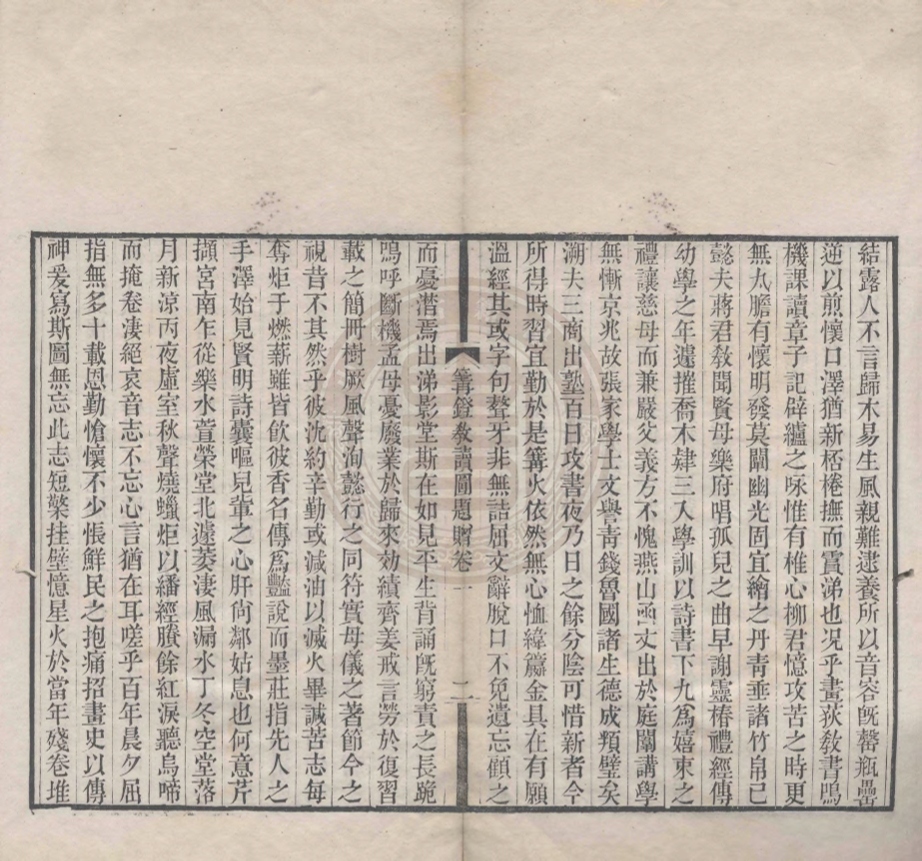 結露人不言歸木易生風親難逮養所以音容旣罄瓶罍
逆以煎懷口澤猶新桮棬撫而霣涕也况乎畫荻敎書鳴
機課讀章子記辟纑之咏惟有椎心柳君憶攻苦之時更
無丸膽有懷明發莫闡幽光固宜繪之丹靑垂諸竹帛已
懿夫蔣君敎聞賢母樂府唱孤兒之曲早謝靈椿禮經傳
幼學之年遽摧喬木肄三入學訓以詩書下九爲嬉束之
禮讓慈母而兼嚴父義方不愧燕山函丈出於庭闈講學
無慚京兆故張家學士文譽靑錢魯國諸生德成頖璧矣
溯夫三商出塾百日攻書夜乃日之餘分陰可惜新者今
所得時習宜勤於是篝火依然無心恤緯籯金具在有願
溫經其或字句聱牙非無詰屈文辭脫口不免遺忘顧之
篝鐙敎讀圖題贈卷一 二
而憂潸焉出涕影堂斯在如見平生背誦旣窮責之長跪
嗚呼斷機孟母憂廢業於歸來効績齊姜戒言勞於復習
載之簡冊樹厥風聲洵懿行之同符實母儀之著節今之
視昔不其然乎彼沈約辛勤或減油以滅火畢諴苦志每
奪炬于燃薪雖皆飮彼香名傳爲豔說而墨莊指先人之
手澤始見賢明詩囊嘔兒輩之心肝尙鄰姑息也何意芹
擷宮南乍從樂水萱榮堂北遽萎淒風漏水丁冬空堂落
月新涼丙夜虛室秋聲燒蠟炬以繙經賸餘紅淚聽烏啼
而掩卷淒絕哀音志不忘心言猶在耳嗟乎百年晨夕屈
指無多十載恩勤愴懷不少悵鮮民之抱痛招畫史以傳
神爰寫斯圖無忘此志短檠挂壁憶星火於當年殘卷堆